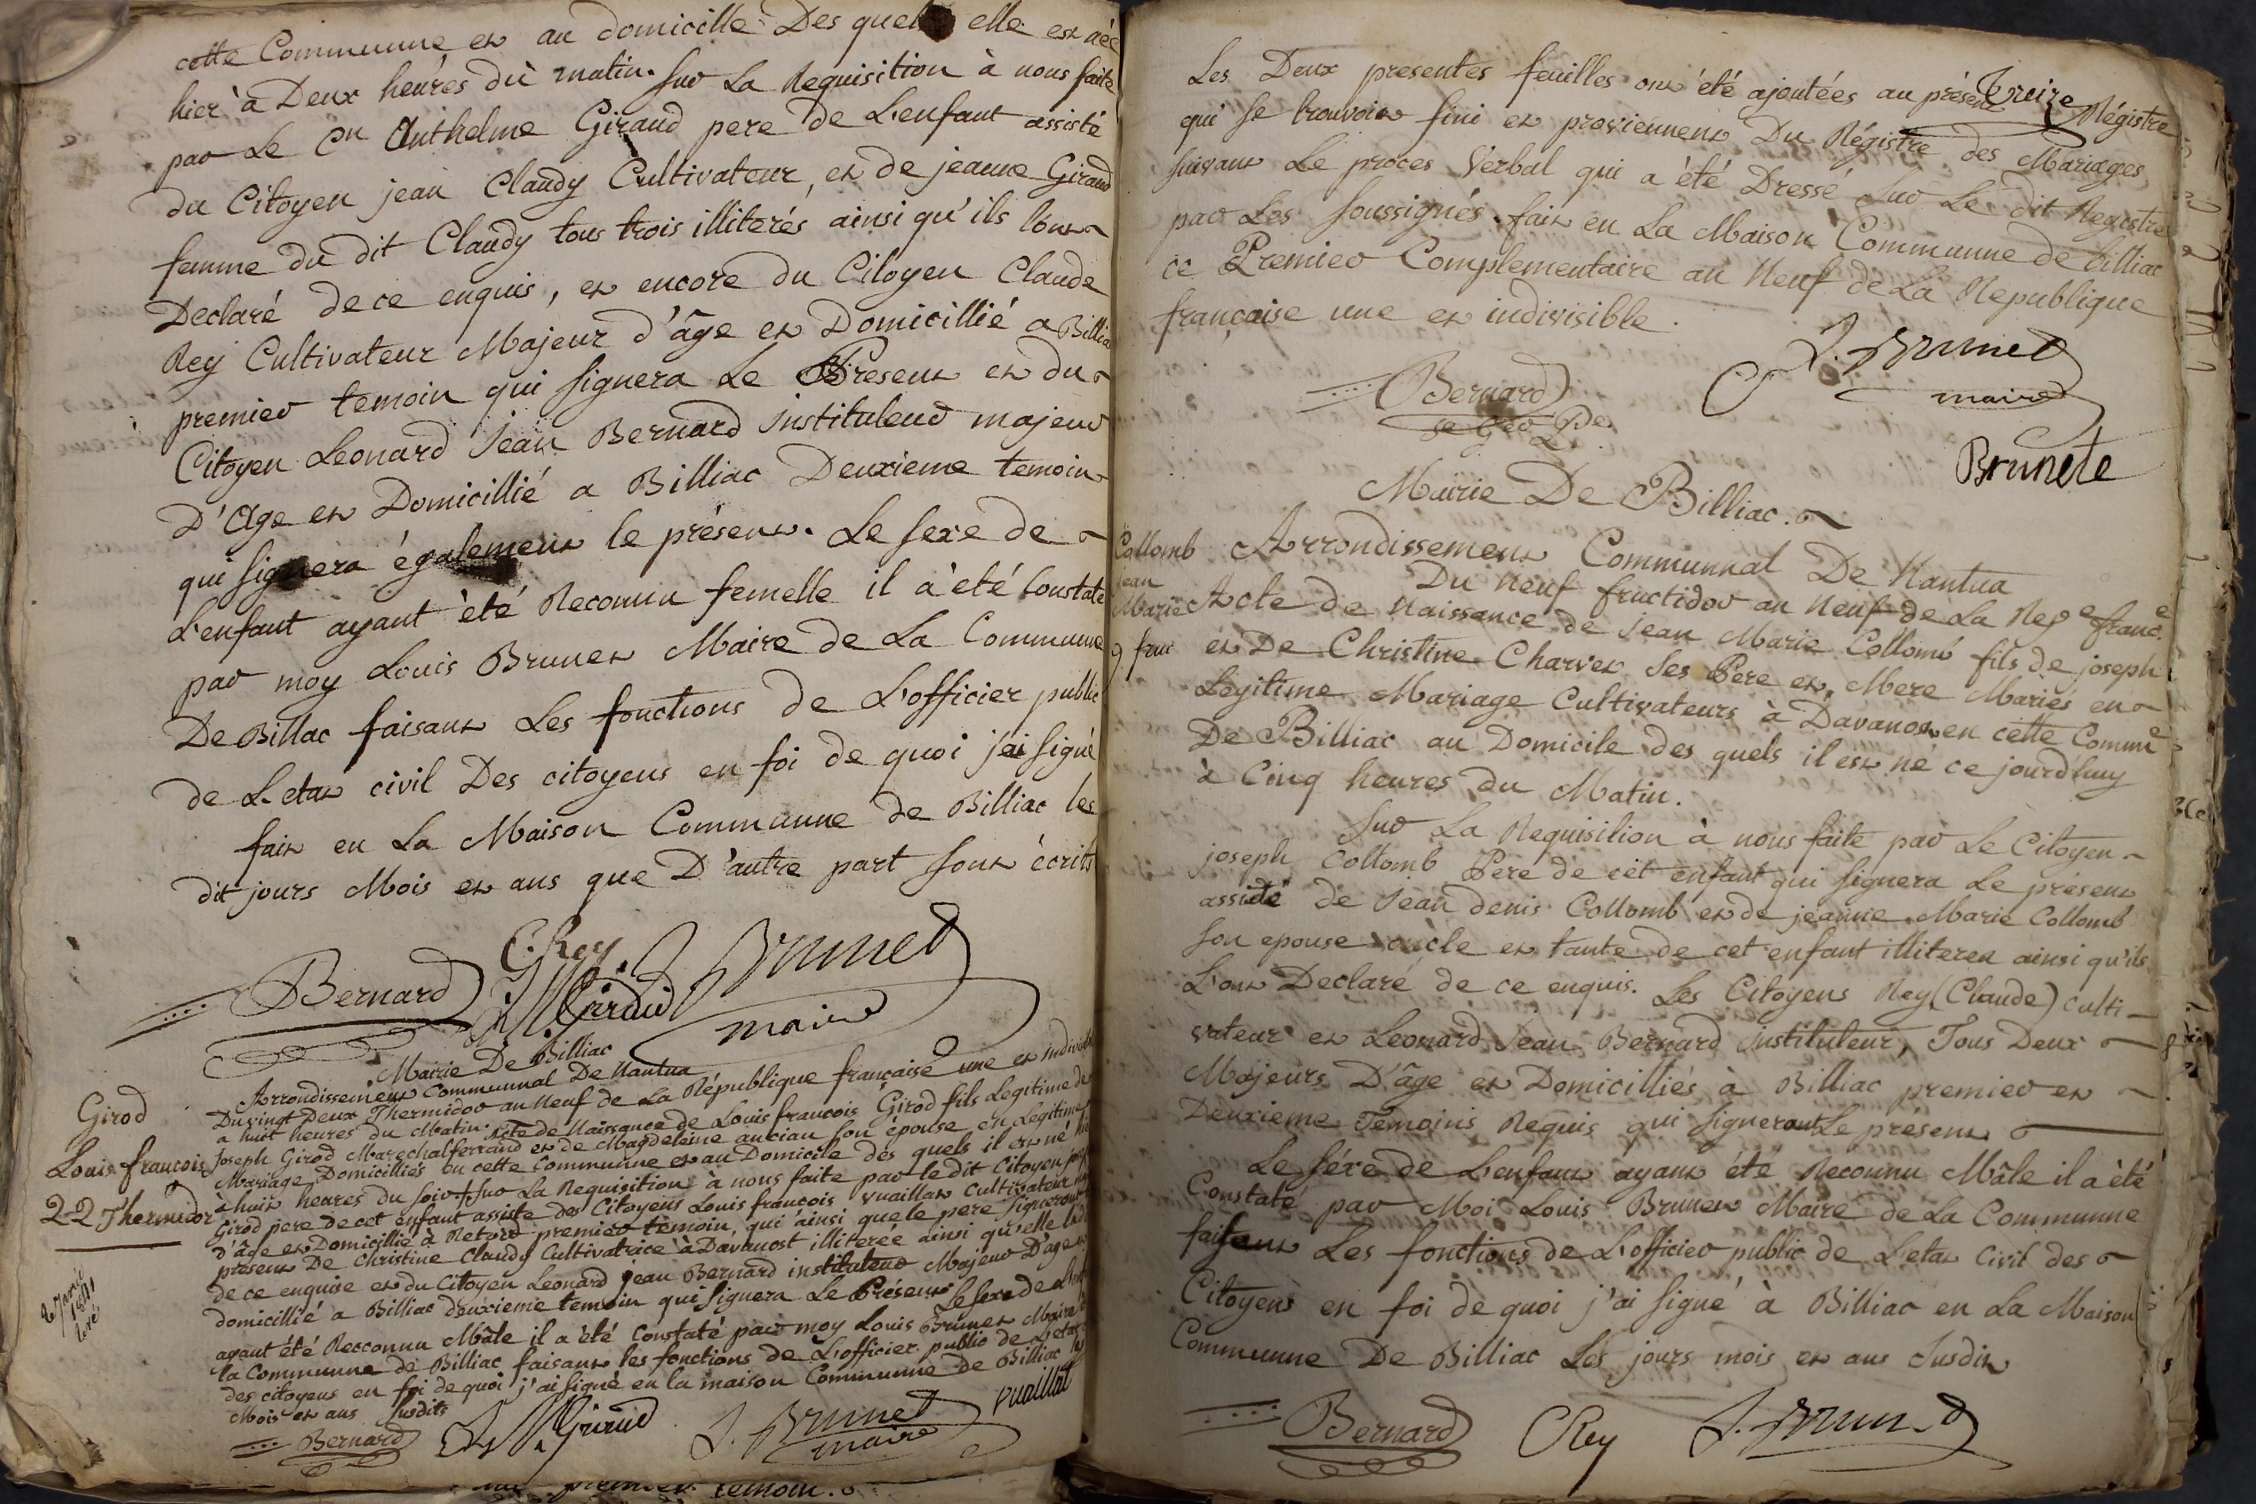 cette Communne et au domicille Des quels elle est née
hier à Deux heures du matin. Sur La Requisition à nous faite
par Le Cn Anthelme Giraud pere de L'enfant assisté
du Citoyen jean Claudy Cultivateur, et de jeanne Giraud
femme du dit Claudy tous trois illiterés ainsi qu'ils l'ont
Declaré de ce enquis, et encore du Citoyen Claude
Rey Cultivateur Majeur d'âge et Domicillié a Billia
premier temoin qui signera Le Present et du
Citoyen Leonard Jean Bernard Instituteur majeur
D'Age et Domicillié a Billiac Deuxieme temoin
qui signera également le présent. Le sexe de
L'enfant ayant été Reconnu femelle il à été Constaté
par moy Louis Brunet Maire de La Communne
De Billac faisant Les fonctions de L'officier public
de L'etat civil Des citoyens en foi de quoi j'ai signé
fait en La Maison Communne de Billiac les
dit jours Mois et ans que D'autre part sont écrits
C. Rey
Bernard Giraud J. Brunet
maire
Mairie De Billiac
Arrondissement Communnal De Nantua
Girod
Du vingt Deux Thermidor an Neuf de La République française une et indivisib
a huit heures du Matin. Acte de Naissance de Louis françois Girod fils Legitime de
Joseph Girod Marechalferrand et de Magdeleine ancian son épouse en Légitime
Louis françois
Mariage Domicilliés en cette Communne et au Domicile des quels il est né hie
à huit heures du soir. Sur La Requisition à nous faite par le dit Citoyen jose
22 Thermidor
Girod pere de cet enfant assisté des Citoyens Louis françois Vuaillat Cultivateur
d'âge et Domicillié à Retord premier temoin, qui ainsi que le pere signeront
présent De Christine Claudy Cultivatrice à Davanost illiterée ainsi qu'elle
de ce enquise et du Citoyen Leonard jean Bernard instituteur Majeur D'age et
domicillié a Billiac deuxieme temoin qui signera Le Présent Le sexe de
ayant été Recconnu Mâle il a été Constaté par moy Louis Brunet Maire
la Communne de Billiac faisant les fonctions de L'officier public de L'etat
des citoyens en foi de quoi j'ai signé en la maison Communne de Billiac
Mois et ans susdits
Bernard Giraud J. Brunet Vuaillat
maire
premier temoin.
Treize
Les Deux presentes feuilles ont été ajoutées au présent Régistre
qui se trouvoit fini et proviennent Du Régistre des Mariages
suivant Le proces Verbal qui a été Dressé Sur Le dit Registre
par Les soussignés. fait en La Maison Communne de billiac
ce Premier Complementaire an Neuf de La Republique
française une et indivisible.
Bernard J. Brunet
maire
Brunete
Mairie De Billiac.
Collomb
Jean
Marie
9 fruc
Arrondissement Communnal De Nantua
Du neuf fructidor an Neuf de La Repe francse
Acte de Naissance de Jean Marie Collomb fils de joseph
et De Christine Charvet ses Pere et Mere Mariés en
Légitime Mariage Cultivateurs à Davanost en cette Comme
De Billiac au Domicile des quels il est né ce jourdhuy
à Cinq heures du Matin.
Sur La Requisition à nous faite par Le Citoyen
joseph Collomb Pere de cet enfant qui signera Le présent
assisté de Jean denis Collomb et de jeanne Marie Collomb
son epouse oncle et tante de cet enfant illiteren ainsi qu'ils
L'ont Declaré de ce enquis. Les Citoyens Rey (Claude) culti-
vateur et Leonard Jean Bernard Instituteur, Tous Deux
Majeurs D'âge et Domicilliés à Billiac premier et
Deuxieme Temoins Requis qui signeront Le présent
Le séxe de L'enfant ayant été Reconnu Mâle il à été
Constaté par Moi Louis Brunet Maire de La Communne
faisant Les fonctions de L'officier public de L'etat Civil des
Citoyens en foi de quoi j'ai signé à Billiac en La Maison
Communne De Billiac Les jours mois et ans Susdit
Bernard CRey J. Brunet